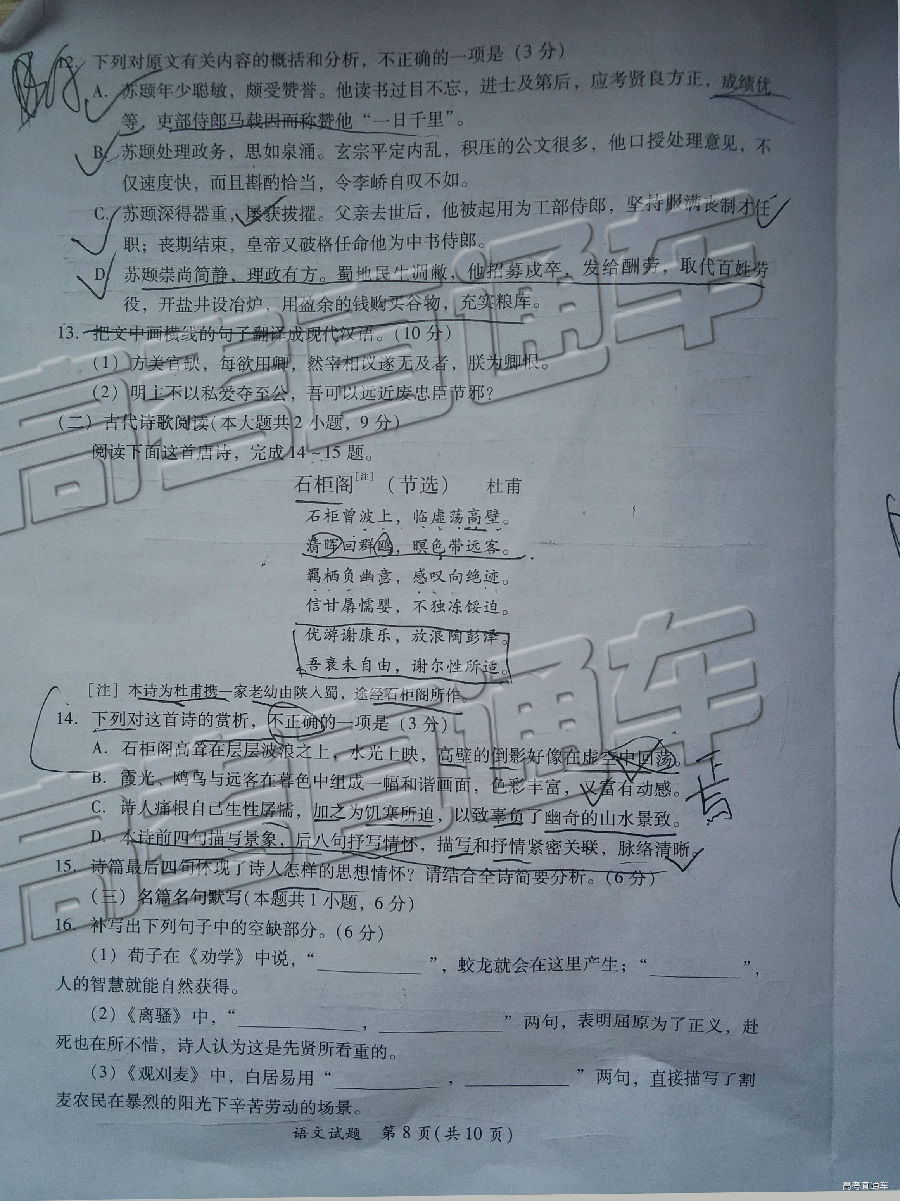 12. 下列对原文有关内容的概括和分析，不正确的一项是（3 分）
A. 苏颋年少聪敏，颇受赞誉。他读书过目不忘，进士及第后，应考贤良方正，成绩优
等，吏部侍郎马载因而称赞他“一日千里”。
B. 苏颋处理政务，思如泉涌。玄宗平定内乱，积压的公文很多，他口授处理意见，不
仅速度快，而且斟酌恰当，令李峤自叹不如。
C. 苏颋深得器重，屡获拔擢。父亲去世后，他被起用为工部侍郎，坚持服满丧制才任
职；丧期结束，皇帝又破格任命他为中书侍郎。
D. 苏颋崇尚简静，理政有方。蜀地民生凋敝，他招募戍卒，发给酬劳，取代百姓劳
役，开盐井设冶炉，用盈余的钱购买谷物，充实粮库。
13. 把文中画横线的句子翻译成现代汉语。（10 分）
（1）方美官缺，每欲用卿，然宰相议遂无及者，朕为卿恨。
（2）明主不以私爱夺至公，吾可以远近废忠臣节邪？
（二）古代诗歌阅读（本大题共 2 小题，9 分）
阅读下面这首唐诗，完成 14～15 题。
石柜阁[注]（节选） 杜甫
石柜曾波上，临虚荡高壁。
清晖回群鸥，暝色带远客。
羁栖负幽意，感叹向绝迹。
信甘孱懦婴，不独冻馁迫。
优游谢康乐，放浪陶彭泽。
吾衰未自由，谢尔性所适。
［注］本诗为杜甫携一家老幼由陕入蜀，途经石柜阁所作。
14. 下列对这首诗的赏析，不正确的一项是（3 分）
A. 石柜阁高耸在层层波浪之上，水光上映，高壁的倒影好像在虚空中回荡。
B. 霞光、鸥鸟与远客在暮色中组成一幅和谐画面，色彩丰富，又富有动感。
C. 诗人痛恨自己生性孱懦，加之为饥寒所迫，以致辜负了幽奇的山水景致。
D. 本诗前四句描写景象，后八句抒写情怀，描写和抒情紧密关联，脉络清晰。
15. 诗篇最后四句体现了诗人怎样的思想情怀？请结合全诗简要分析。（6 分）
（三）名篇名句默写（本题共 1 小题，6 分）
16. 补写出下列句子中的空缺部分。（6 分）
（1）荀子在《劝学》中说，“__________”，蛟龙就会在这里产生；“__________”，
人的智慧就能自然获得。
（2）《离骚》中，“__________，__________”两句，表明屈原为了正义，赴
死也在所不惜，诗人认为这是先贤所看重的。
（3）《观刈麦》中，白居易用“__________，__________”两句，直接描写了割
麦农民在暴烈的阳光下辛苦劳动的场景。
语文试题 第 8 页（共 10 页）
高考直通车
高考直通车
高考直通车